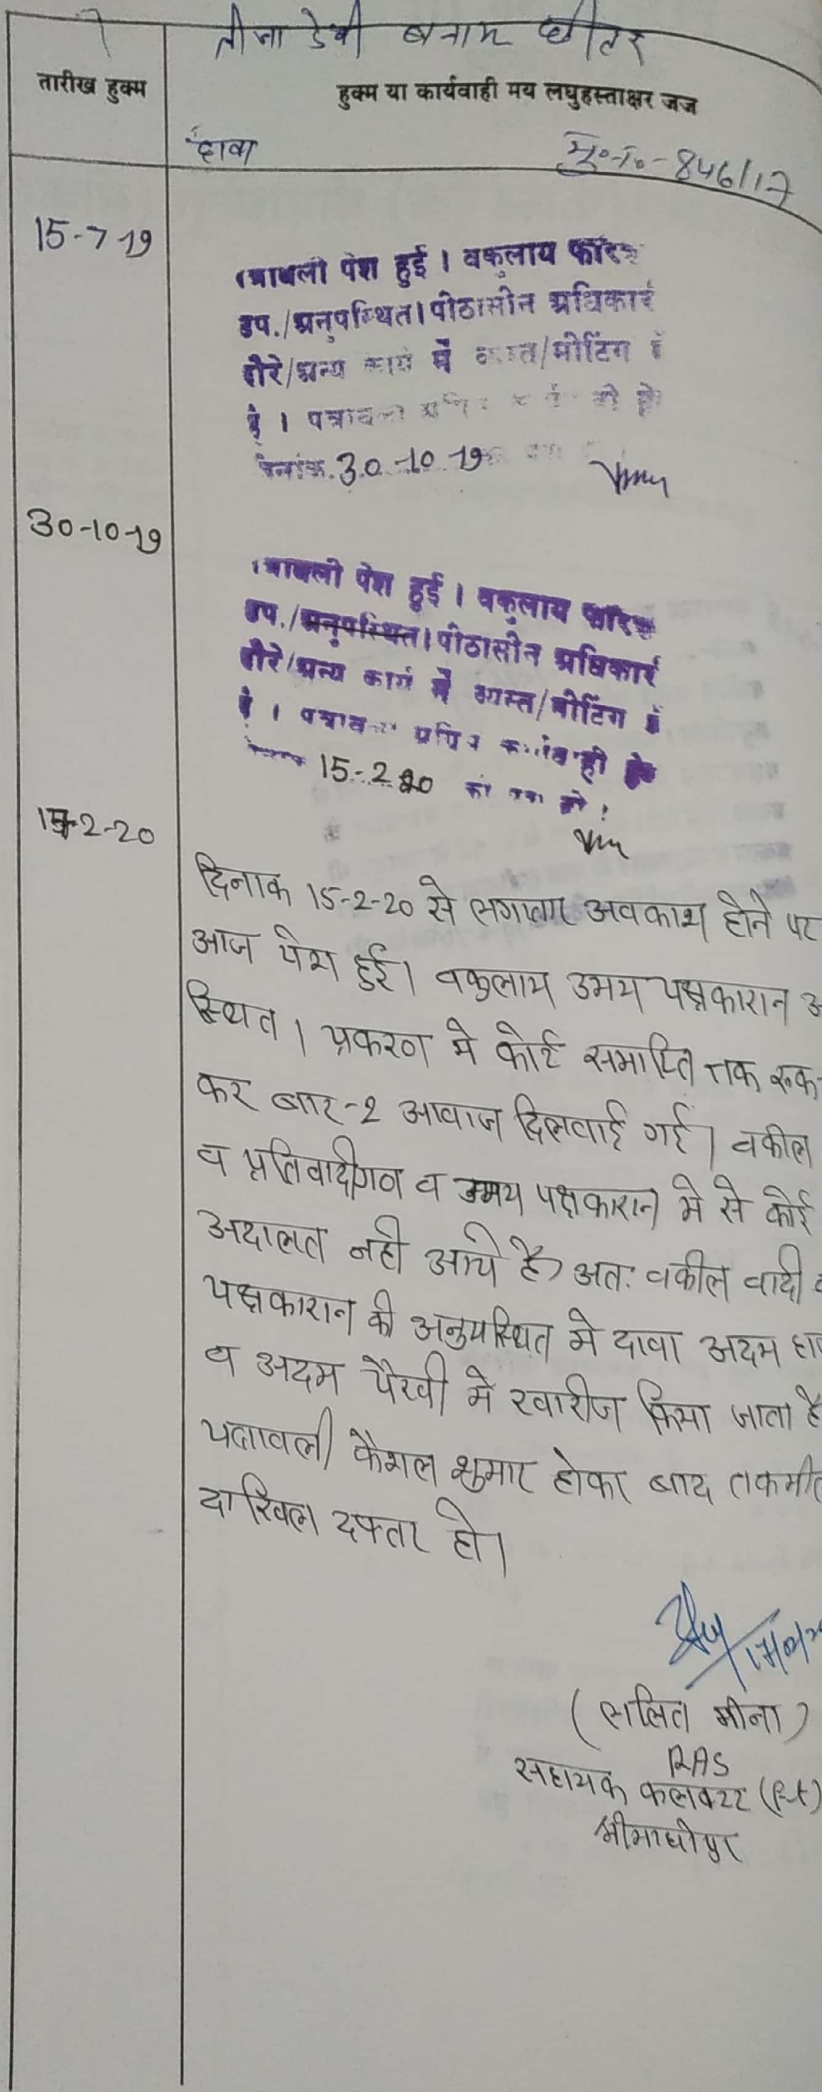 तीजा देवी बनाम छीतर
तारीख हुक्म
हुक्म या कार्यवाही मय लघुहस्ताक्षर जज
दावा
मु०न०-846/17
15-7-19
पत्रावली पेश हुई । वकुलाय फरिक
उप./अनुपस्थित। पीठासीन अधिकारी
दौरे/अन्य कार्य में व्यस्त/मीटिंग
है । पत्रावली
दिनांक 30-10-19
30-10-19
पत्रावली पेश हुई । वकुलाय फरिक
उप./अनुपस्थित। पीठासीन अधिकारी
दौरे/अन्य कार्य में व्यस्त/मीटिंग
है । पत्रावली अग्रिम कार्यवाही
15-2-20 को पेश हो !
17-2-20
दिनाक 15-2-20 से लगातार अवकाश होने पर
आज पेश हुई। वकुलाय उभय पक्षकारान अ
स्थित । प्रकरण मे कोर्ट समाप्ति तक रूक
कर बार-2 आवाज दिलवाई गई। वकील
व प्रतिवादीगण व उभय पक्षकारान मे से कोई
अदालत नही आये है। अतः वकील वादी व
पक्षकारान की अनुपस्थित मे दावा अदम हा
व अदम पैरवी मे खारीज किया जाता है
पत्रावली फैशल शुमार होकर बाद तकमी
दाखिल दफ्तर हो।
(ललित मीना)
RAS
सहायक कलक्टर
श्रीमाधोपुर